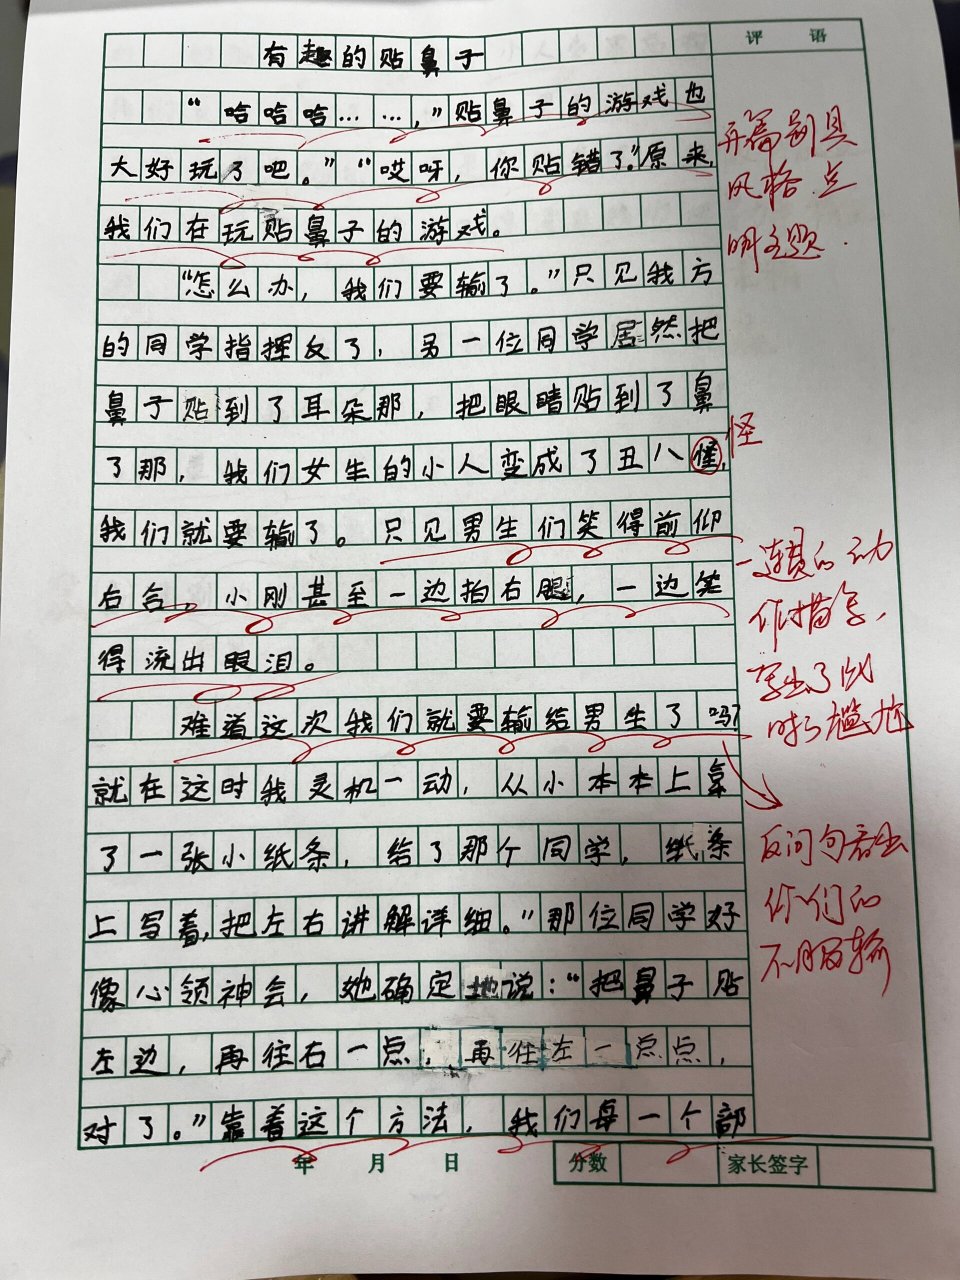 评 语
有趣的贴鼻子
“哈哈哈……，”贴鼻子的游戏也
大好玩了吧。”“哎呀，你贴错了”原来，
我们在玩贴鼻子的游戏。
“怎么办，我们要输了。”只见我方
的同学指挥反了，另一位同学居然把
鼻子贴到了耳朵那，把眼睛贴到了鼻
了那，我们女生的小人变成了丑八
我们就要输了。只见男生们笑得前仰
后合。小刚甚至一边拍右腿，一边笑
得流出眼泪。
难道这次我们就要输给男生了吗？
就在这时我灵机一动，从小本本上拿
了一张小纸条，给了那个同学，纸条
上写着，把左右讲解详细。”那位同学好
像心领神会，她确定地说：“把鼻子贴
左边，再往右一点，再往左一点点，
对了。”靠着这个方法，我们每一个部
开篇别具
风格，点
明主题.
怪
一连贯的动
作描写，
写出了此
时的尴尬
反问句看出
你们的
不服输
年 月 日
分数
家长签字